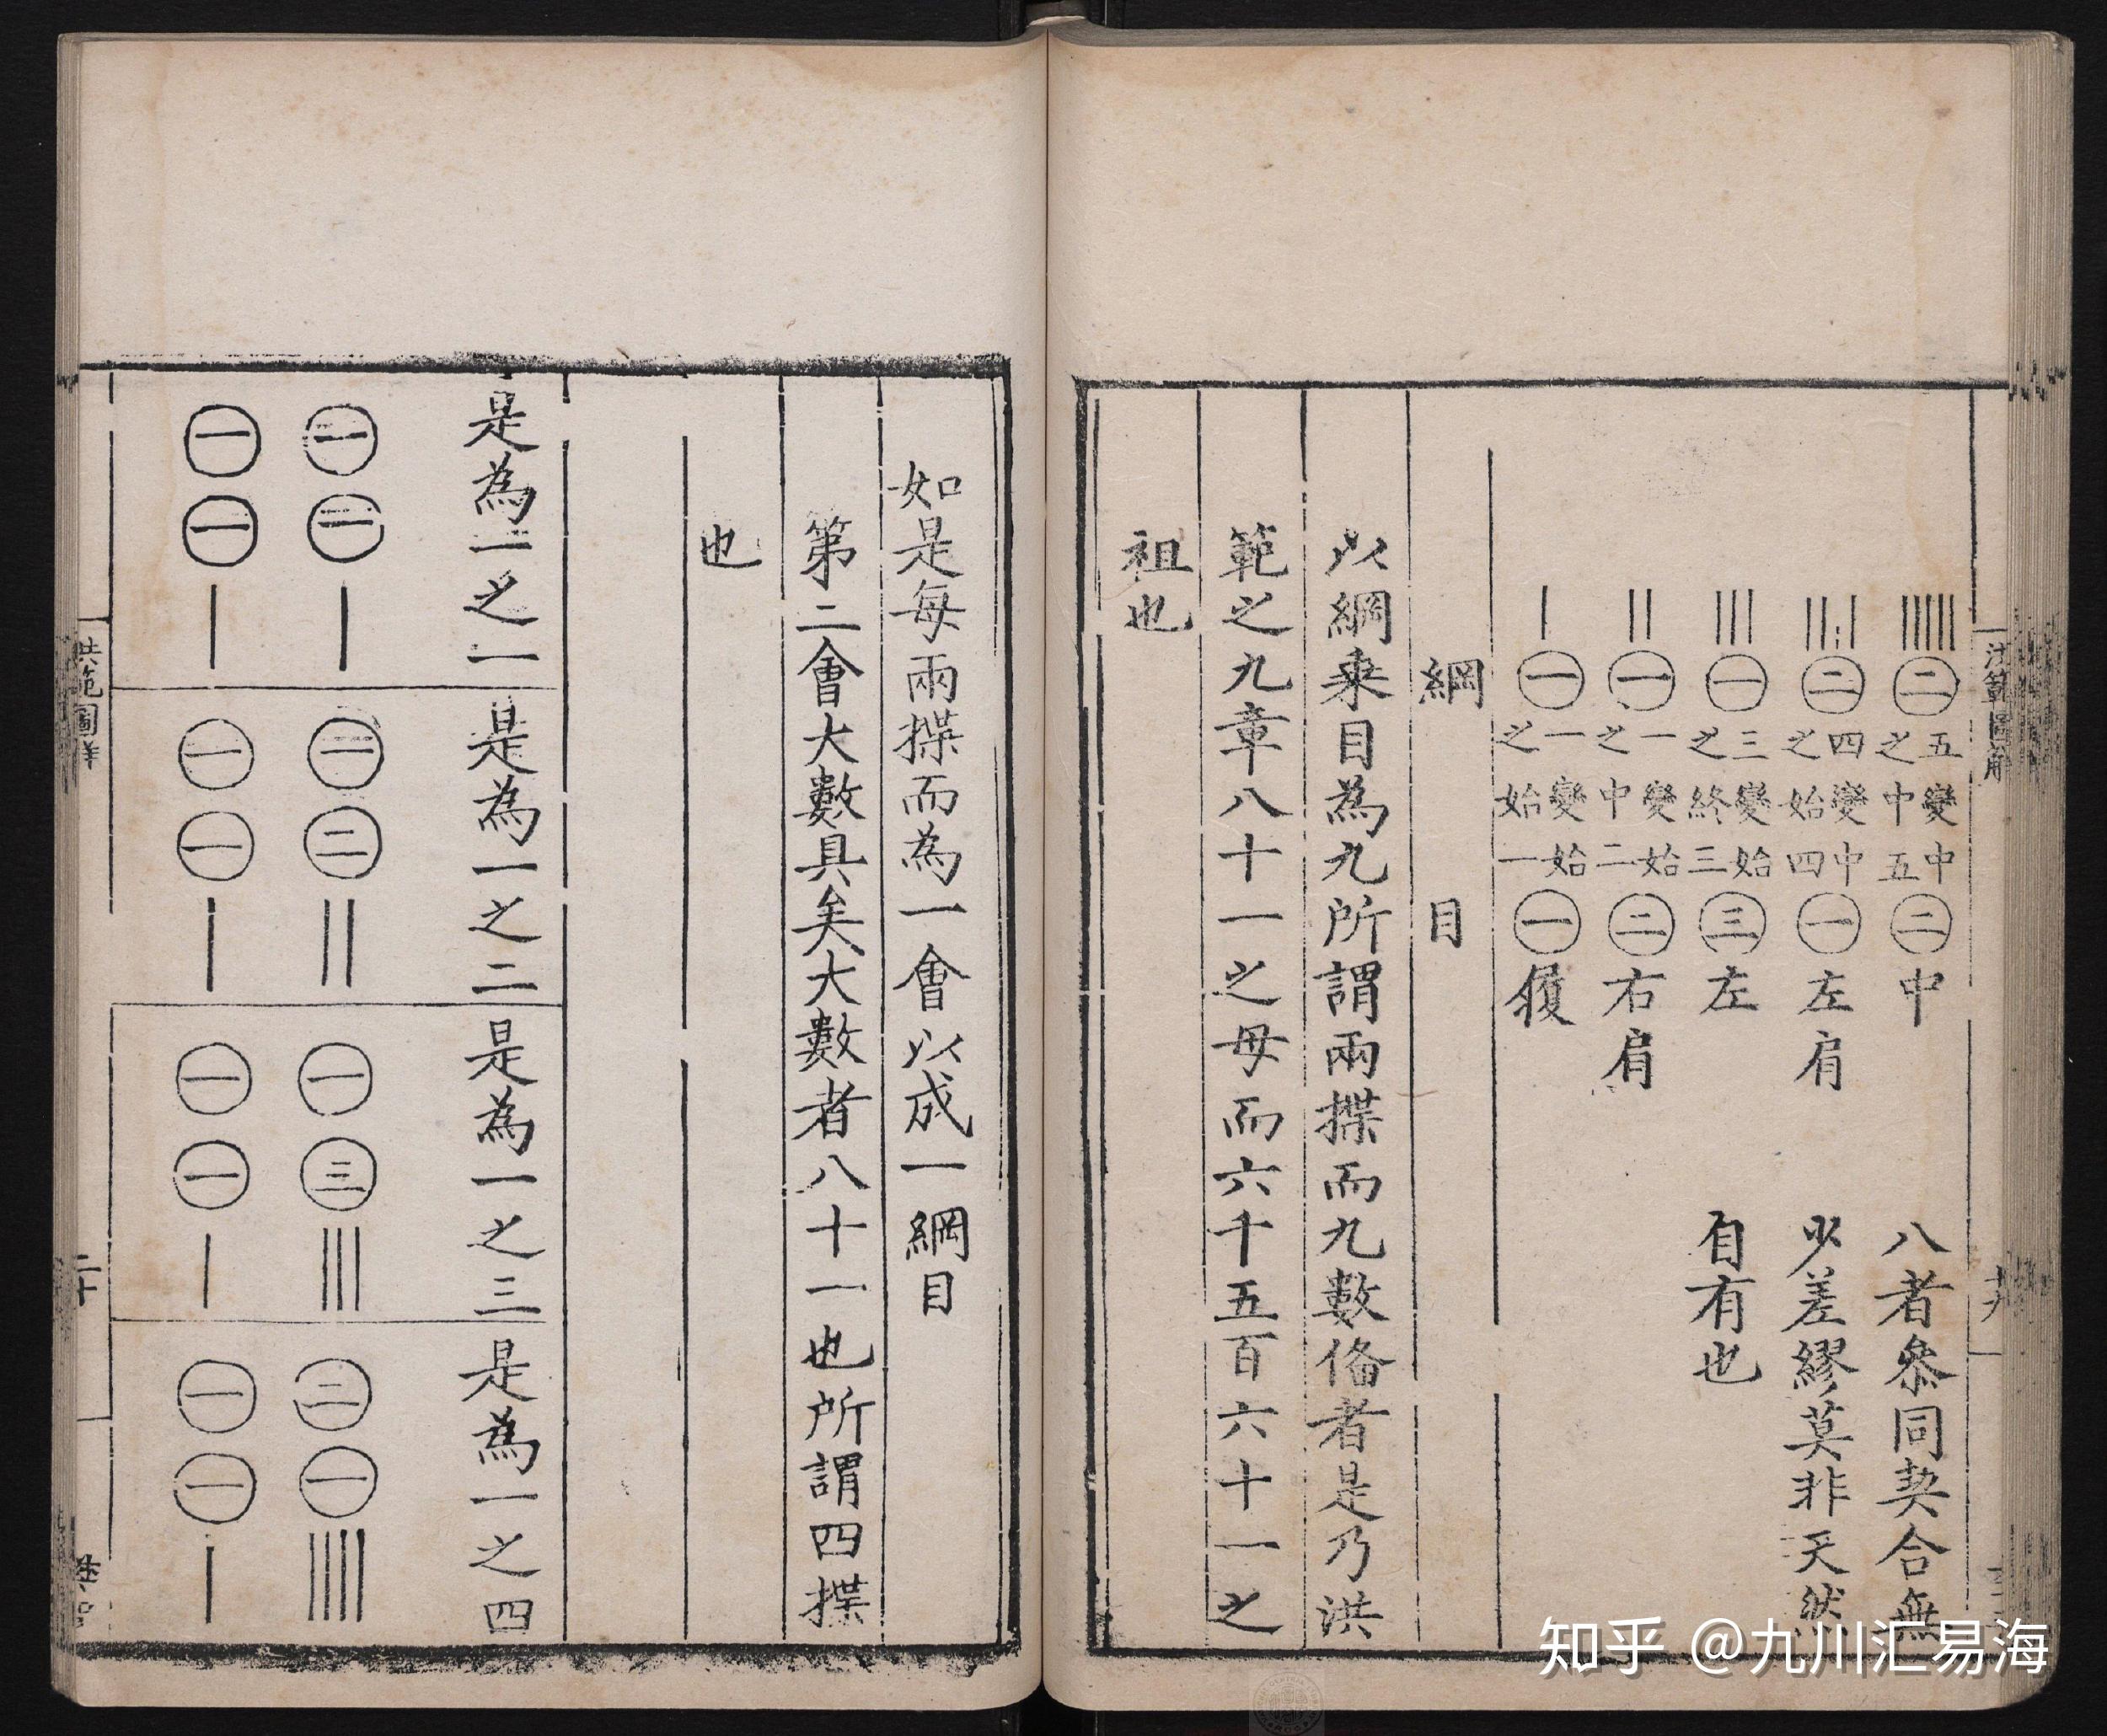 洪範圖解
十九
||||| ㊁ 五變中之中五 ㊁ 中 八者參同契合無
|||| ㊁ 四變中之始四 ㊀ 左肩 少差繆莫非天然
||| ㊀ 三變始之終三 ㊂ 左 自有也
|| ㊀ 一變始之中二 ㊁ 右肩
| ㊀ 一變始之始一 ㊀ 履
綱 目
以綱乘目為九所謂兩揲而九數俻者是乃洪
範之九章八十一之母而六千五百六十一之
祖也
如是每兩揲而為一會以成一綱目
第二會大數具矣大數者八十一也所謂四揲
也
是為一之一 是為一之二 是為一之三 是為一之四
㊀㊀| ㊀㊁|| ㊀㊂||| ㊁㊀||||
㊀㊀| ㊀㊀| ㊀㊀| ㊀㊀|
洪範圖解
二十
知乎 @九川汇易海